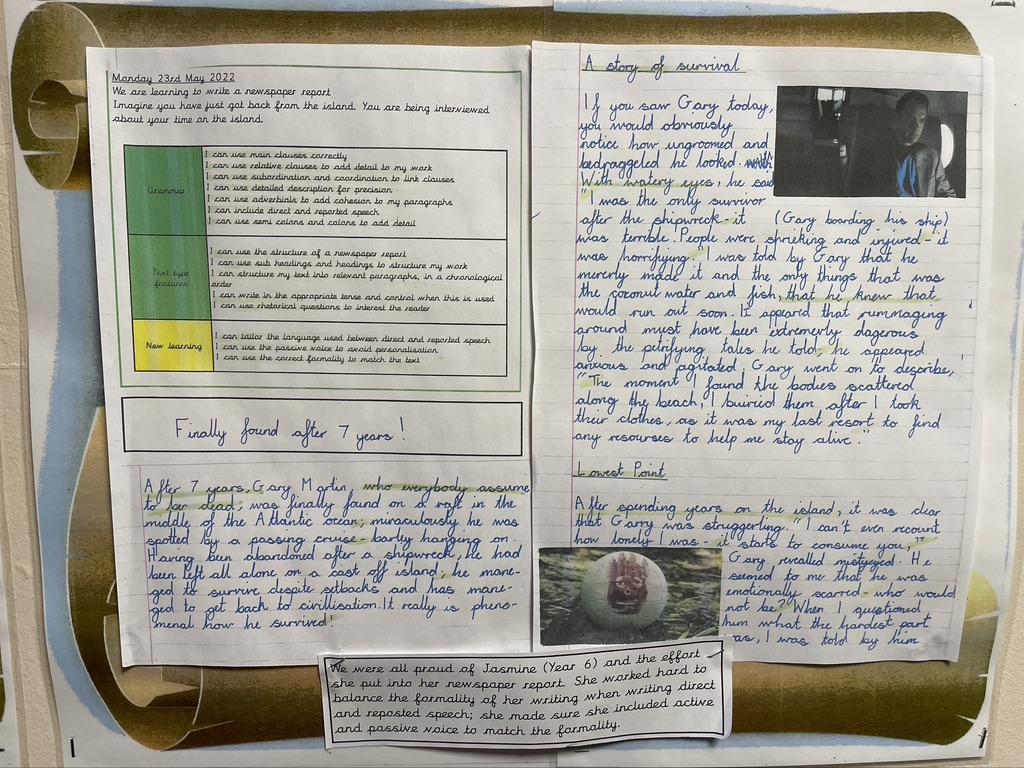 Monday 23rd May 2022
We are learning to write a newspaper report
Imagine you have just got back from the island. You are being interviewed
about your time on the island.
Grammar
I can use main clauses correctly
I can use relative clauses to add detail to my work
I can use subordination and coordination to link clauses
I can use detailed description for precision
I can use adverbials to add cohesion to my paragraphs
I can include direct and reported speech
I can use semi colons and colons to add detail
Text type
features
I can use the structure of a newspaper report
I can use sub headings and headings to structure my work
I can structure my text into relevant paragraphs, in a chronological
order
I can write in the appropriate tense and control when this is used
I can use rhetorical questions to interest the reader
New learning
I can tailor the language used between direct and reported speech
I can use the passive voice to avoid personalisation
I can use the correct formality to match the text
Finally found after 7 years!
After 7 years, Gary Martin, who everybody assume
to be dead, was finally found on a raft in the
middle of the Atlantic ocean; miraculously he was
spotted by a passing cruise - barley hanging on.
Having been abandoned after a shipwreck, he had
been left all alone on a cast off island; he mane-
ged to survive despite setbacks and has mane-
ged to get back to civilisation. It really is pheno-
menal how he survived!
A story of survival
If you saw Gary today,
you would obviously
notice how ungroomed and
bedraggeled he looked.
With watery eyes, he said
"I was the only survivor
after the shipwreck - it
(Gary boarding his ship)
was terrible! People were shrieking and injured - it
was horrifying." I was told by Gary that he
mercrly made it and the only things that was
the coconut water and fish, that he knew that
would run out soon. It appeared that rummaging
around must have been extremerly dagerous
by the petrifying tales he told; he appeared
anxious and agitated. Gary went on to describe,
"The moment I found the bodies scattered
along the beach, I buiried them after I took
their clothes, as it was my last resort to find
any resourses to help me stay alive."
Lowest Point
After spending years on the island, it was clear
that Garry was struggerling. "I can't even recount
how lonely I was - it starts to consume you,"
Gary revealled mistyeyed. He
seemed to me that he was
emotionally scarred - who would
not be? When I questioned
him what the hardest part
was, I was told by him
We were all proud of Jasmine (Year 6) and the effort
she put into her newspaper report. She worked hard to
balance the formality of her writing when writing direct
and reported speech; she made sure she included active
and passive voice to match the formality.